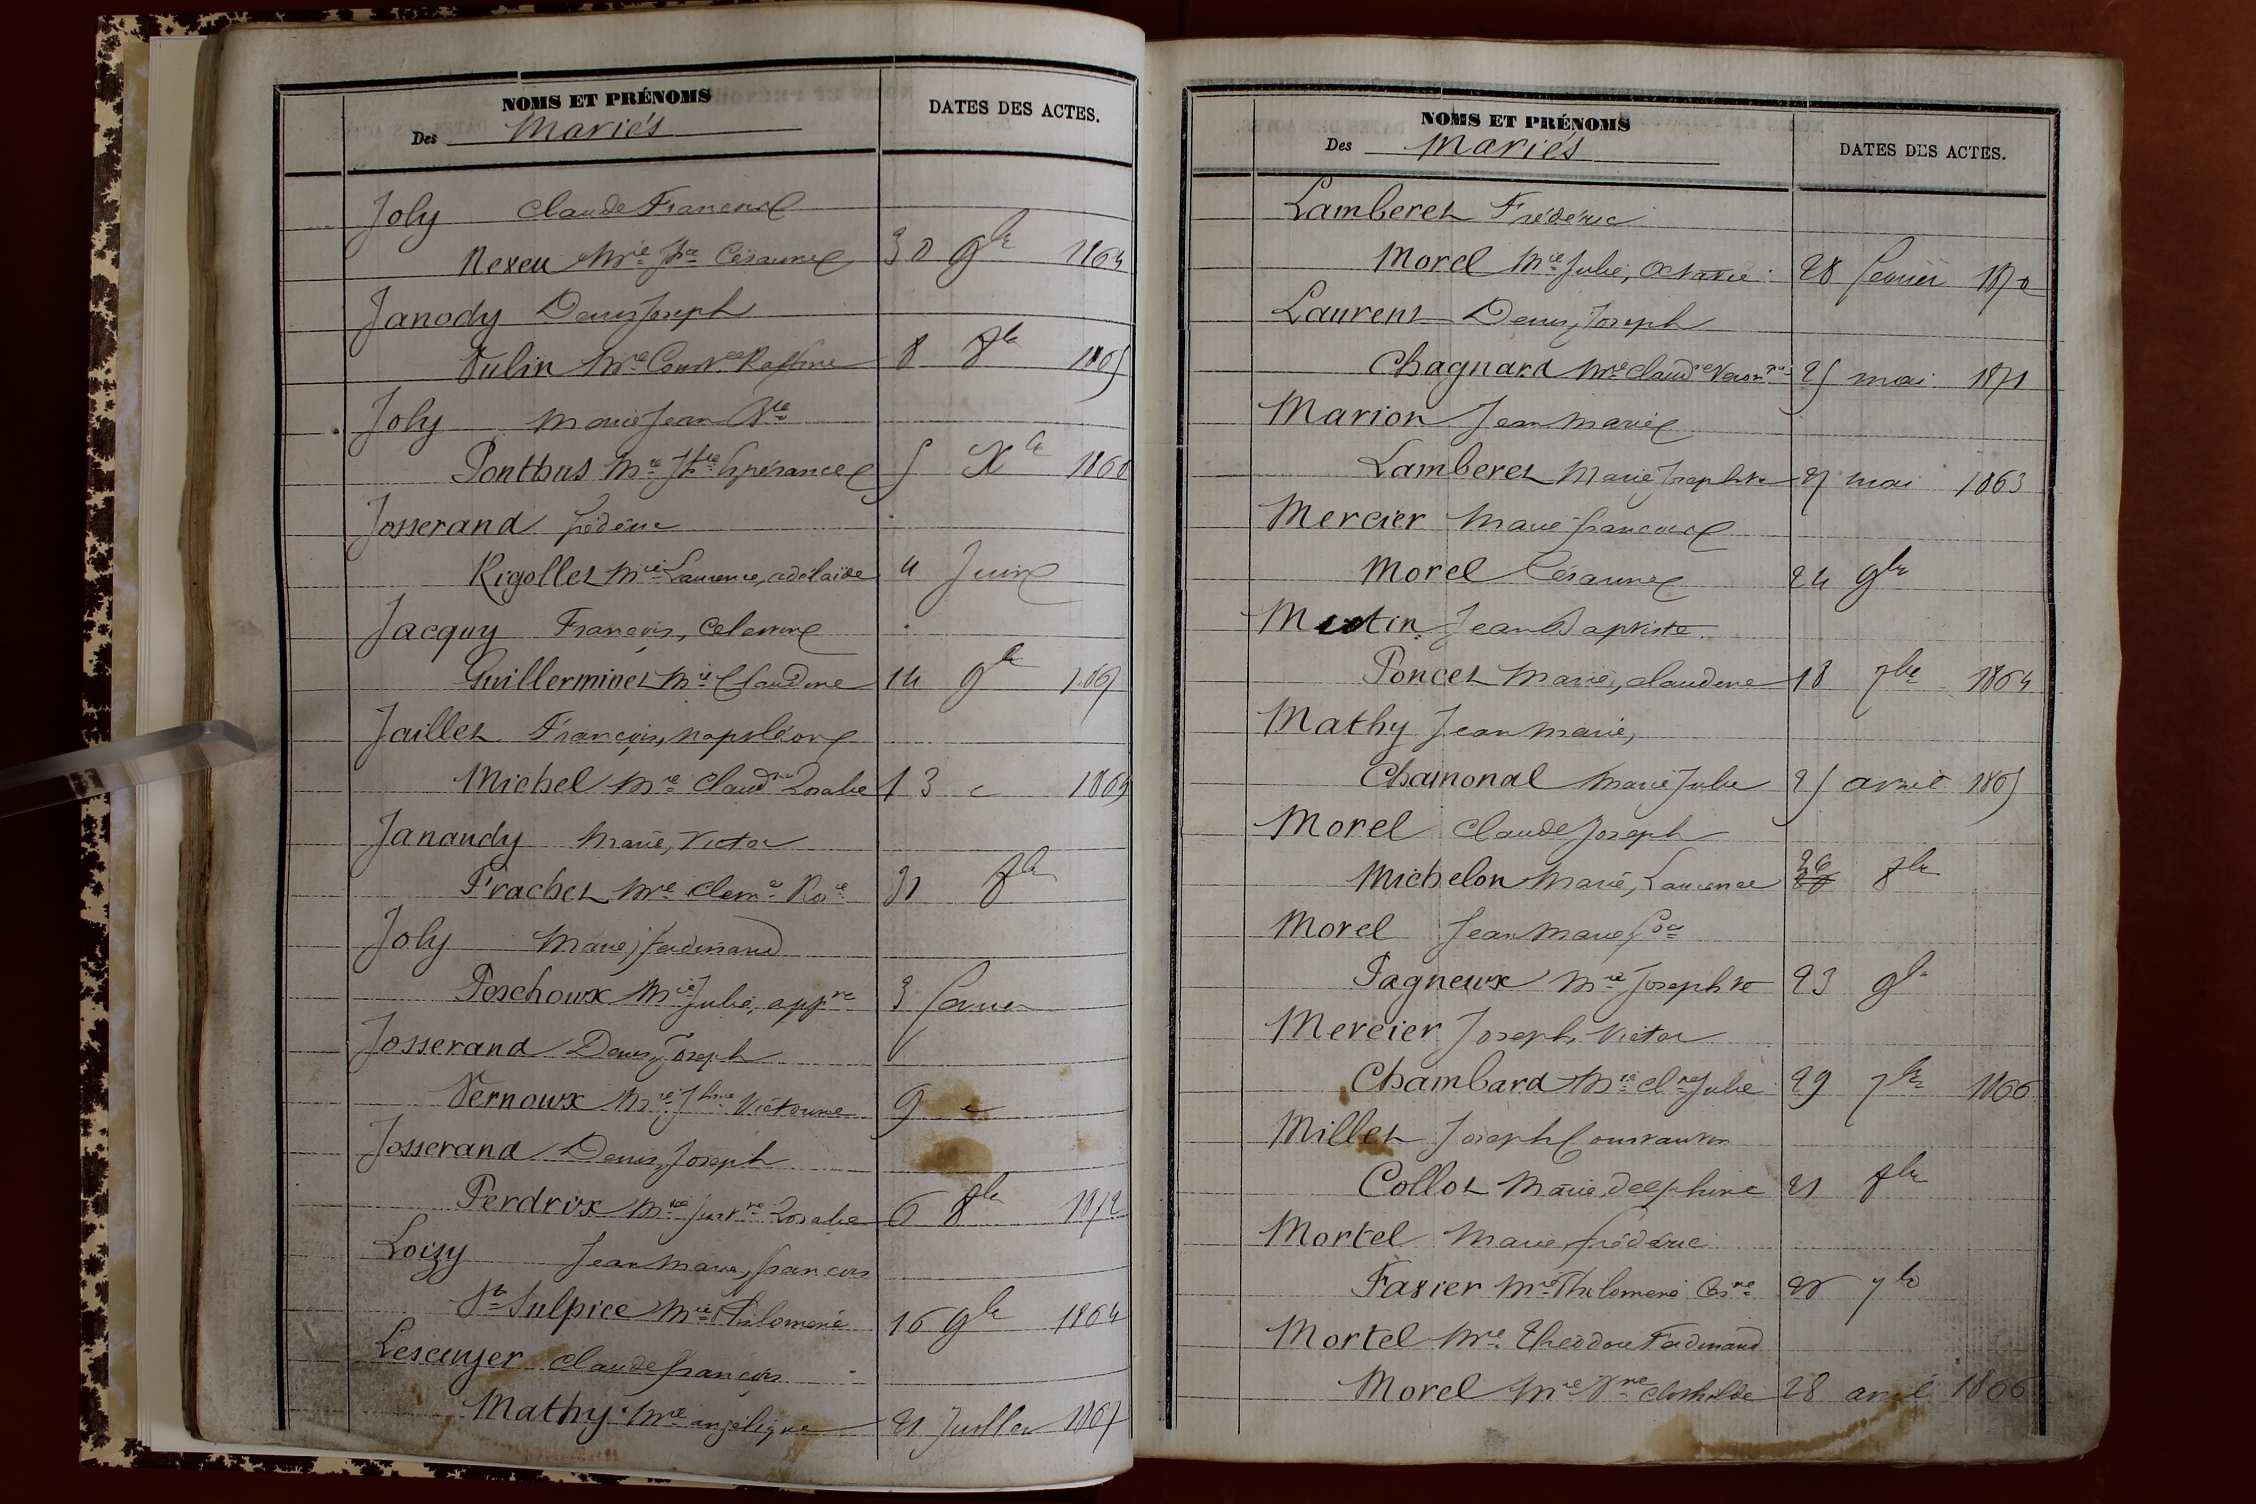 NOMS ET PRÉNOMS
Des Mariés
DATES DES ACTES.
Joly Claude Francois
Nexeu Mie Jne Césarine 30 9bre 1864
Janody Denis Joseph
Vulin Mie Const ce 8 8bre 1865
Joly Marie Jean Bte
Ponthus Mie Jhte Espérance 5 Xbre 1868
Josserand fréderic
Rigollet Mie Laurence, adelaïde 4 Juin
Jacquy François, Celestin
Guillerminet Mie Claudine 14 9bre 1867
Jaillet François, Napoléon
Michel Mie Claudne Rosalie 13 1869
Janaudy Marie, Victor
Frachet Mie Clemce Rosie 31 8bre
Joly Marie, ferdinand
Poschoux Mie Julie, appne 3 fevrier
Josserand Denis, Joseph
Vernoux Mie Jhine Victorine 9
Josserand Denis, Joseph
Perdrix Mie Justne Rosalie 6 8bre 1872
Loizy Jean Marie, francois
St Sulpice Mie Philomene 16 9bre 1864
Lescuyer Claude françois
Mathy Mie angélique 21 Juillet 1867
NOMS ET PRÉNOMS
Des Mariés
DATES DES ACTES.
Lamberet Fréderic
Morel Mie Julie, Octavie 28 fevrier 1870
Laurent Denis, Joseph
Chagnard Mie Claudne Veronque 25 mai 1871
Marion Jean Marie
Lamberet Marie Josephte 27 mai 1863
Mercier Marie francois
Morel Césarine 24 9bre
Jean Baptiste
Poncet Marie, claudine 18 7bre 1864
Mathy Jean Marie,
Chamonal Marie Julie 25 avril 1865
Morel Claude Joseph
Michelon Marie, Laurence 26 8bre
Morel Jean Marie fois
Pagneux Mie Josephte 23 9bre
Mercier Joseph, Victor
Chambard Mie Clne Julie 29 7bre 1866
Millet Joseph Constantin
Collot Marie, Delphine 21 8bre
Mortel Marie, fréderic
Favier Mie Philomene Cesne 28 7bre
Mortel Mie Théodore Ferdinand
Morel Mie Vne Clothilde 28 avril 1866